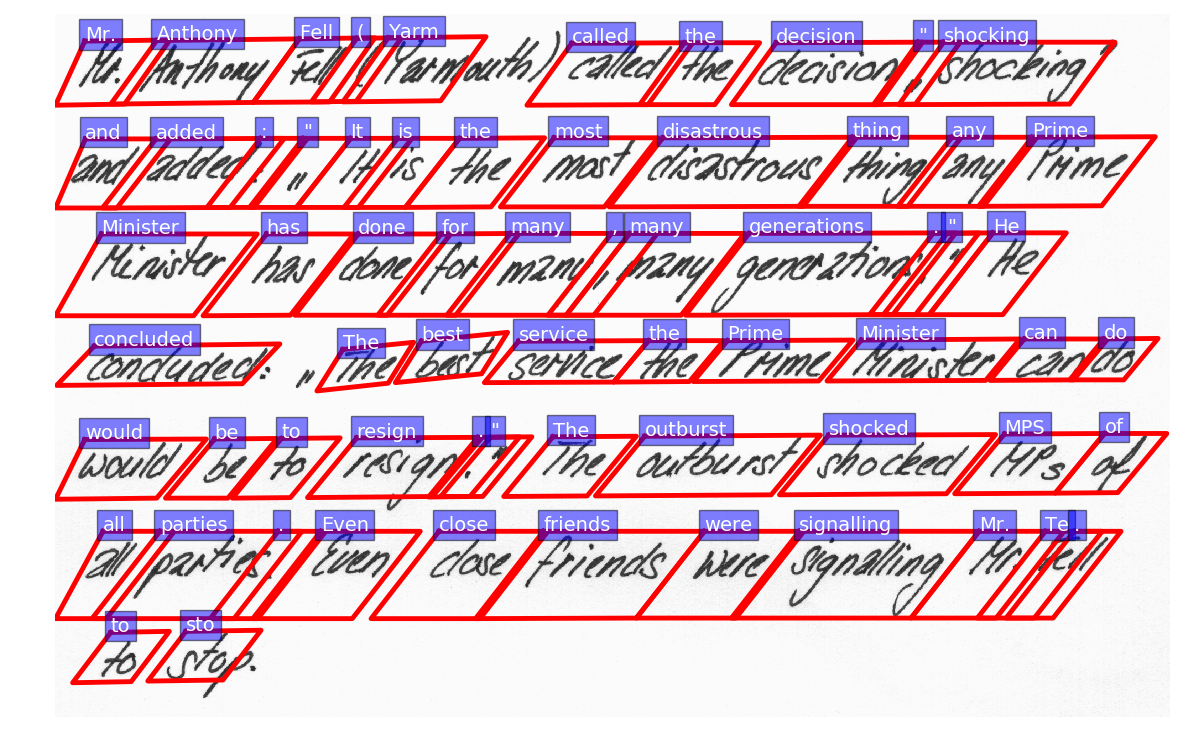 Mr. Anthony Fell ( Yarm called the decision " shocking
Mr. Anthony Fell (Yarmouth) called the decision „shocking"
and added : " It is the most disastrous thing any Prime
and added: „It is the most disastrous thing any Prime
Minister has done for many , many generations . " He
Minister has done for many, many generations." He
concluded The best service the Prime Minister can do
concluded: „The best service the Prime Minister can do
would be to resign . " The outburst shocked MPS of
would be to resign." The outburst shocked MPs of
all parties . Even close friends were signalling Mr. Te .
all parties. Even close friends were signalling Mr. Fell
to sto
to stop.